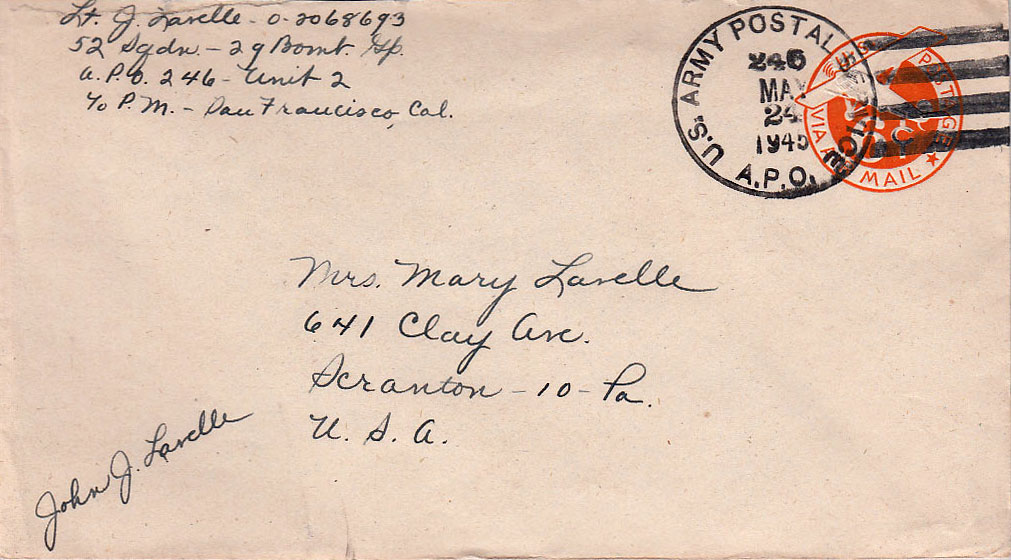 Lt. J. Lavelle - O-2068693
52 Sqdn. - 29 Bomb. Gp.
A.P.O. 246 - Unit 2
c/o P.M. - San Francisco, Cal.
U.S. ARMY POSTAL SERVICE
246
MAY
24
1945
A.P.O.
U.S. POSTAGE
VIA AIR MAIL
6 C
Mrs. Mary Lavelle
641 Clay Ave.
Scranton - 10 - Pa.
U. S. A.
John J. Lavelle